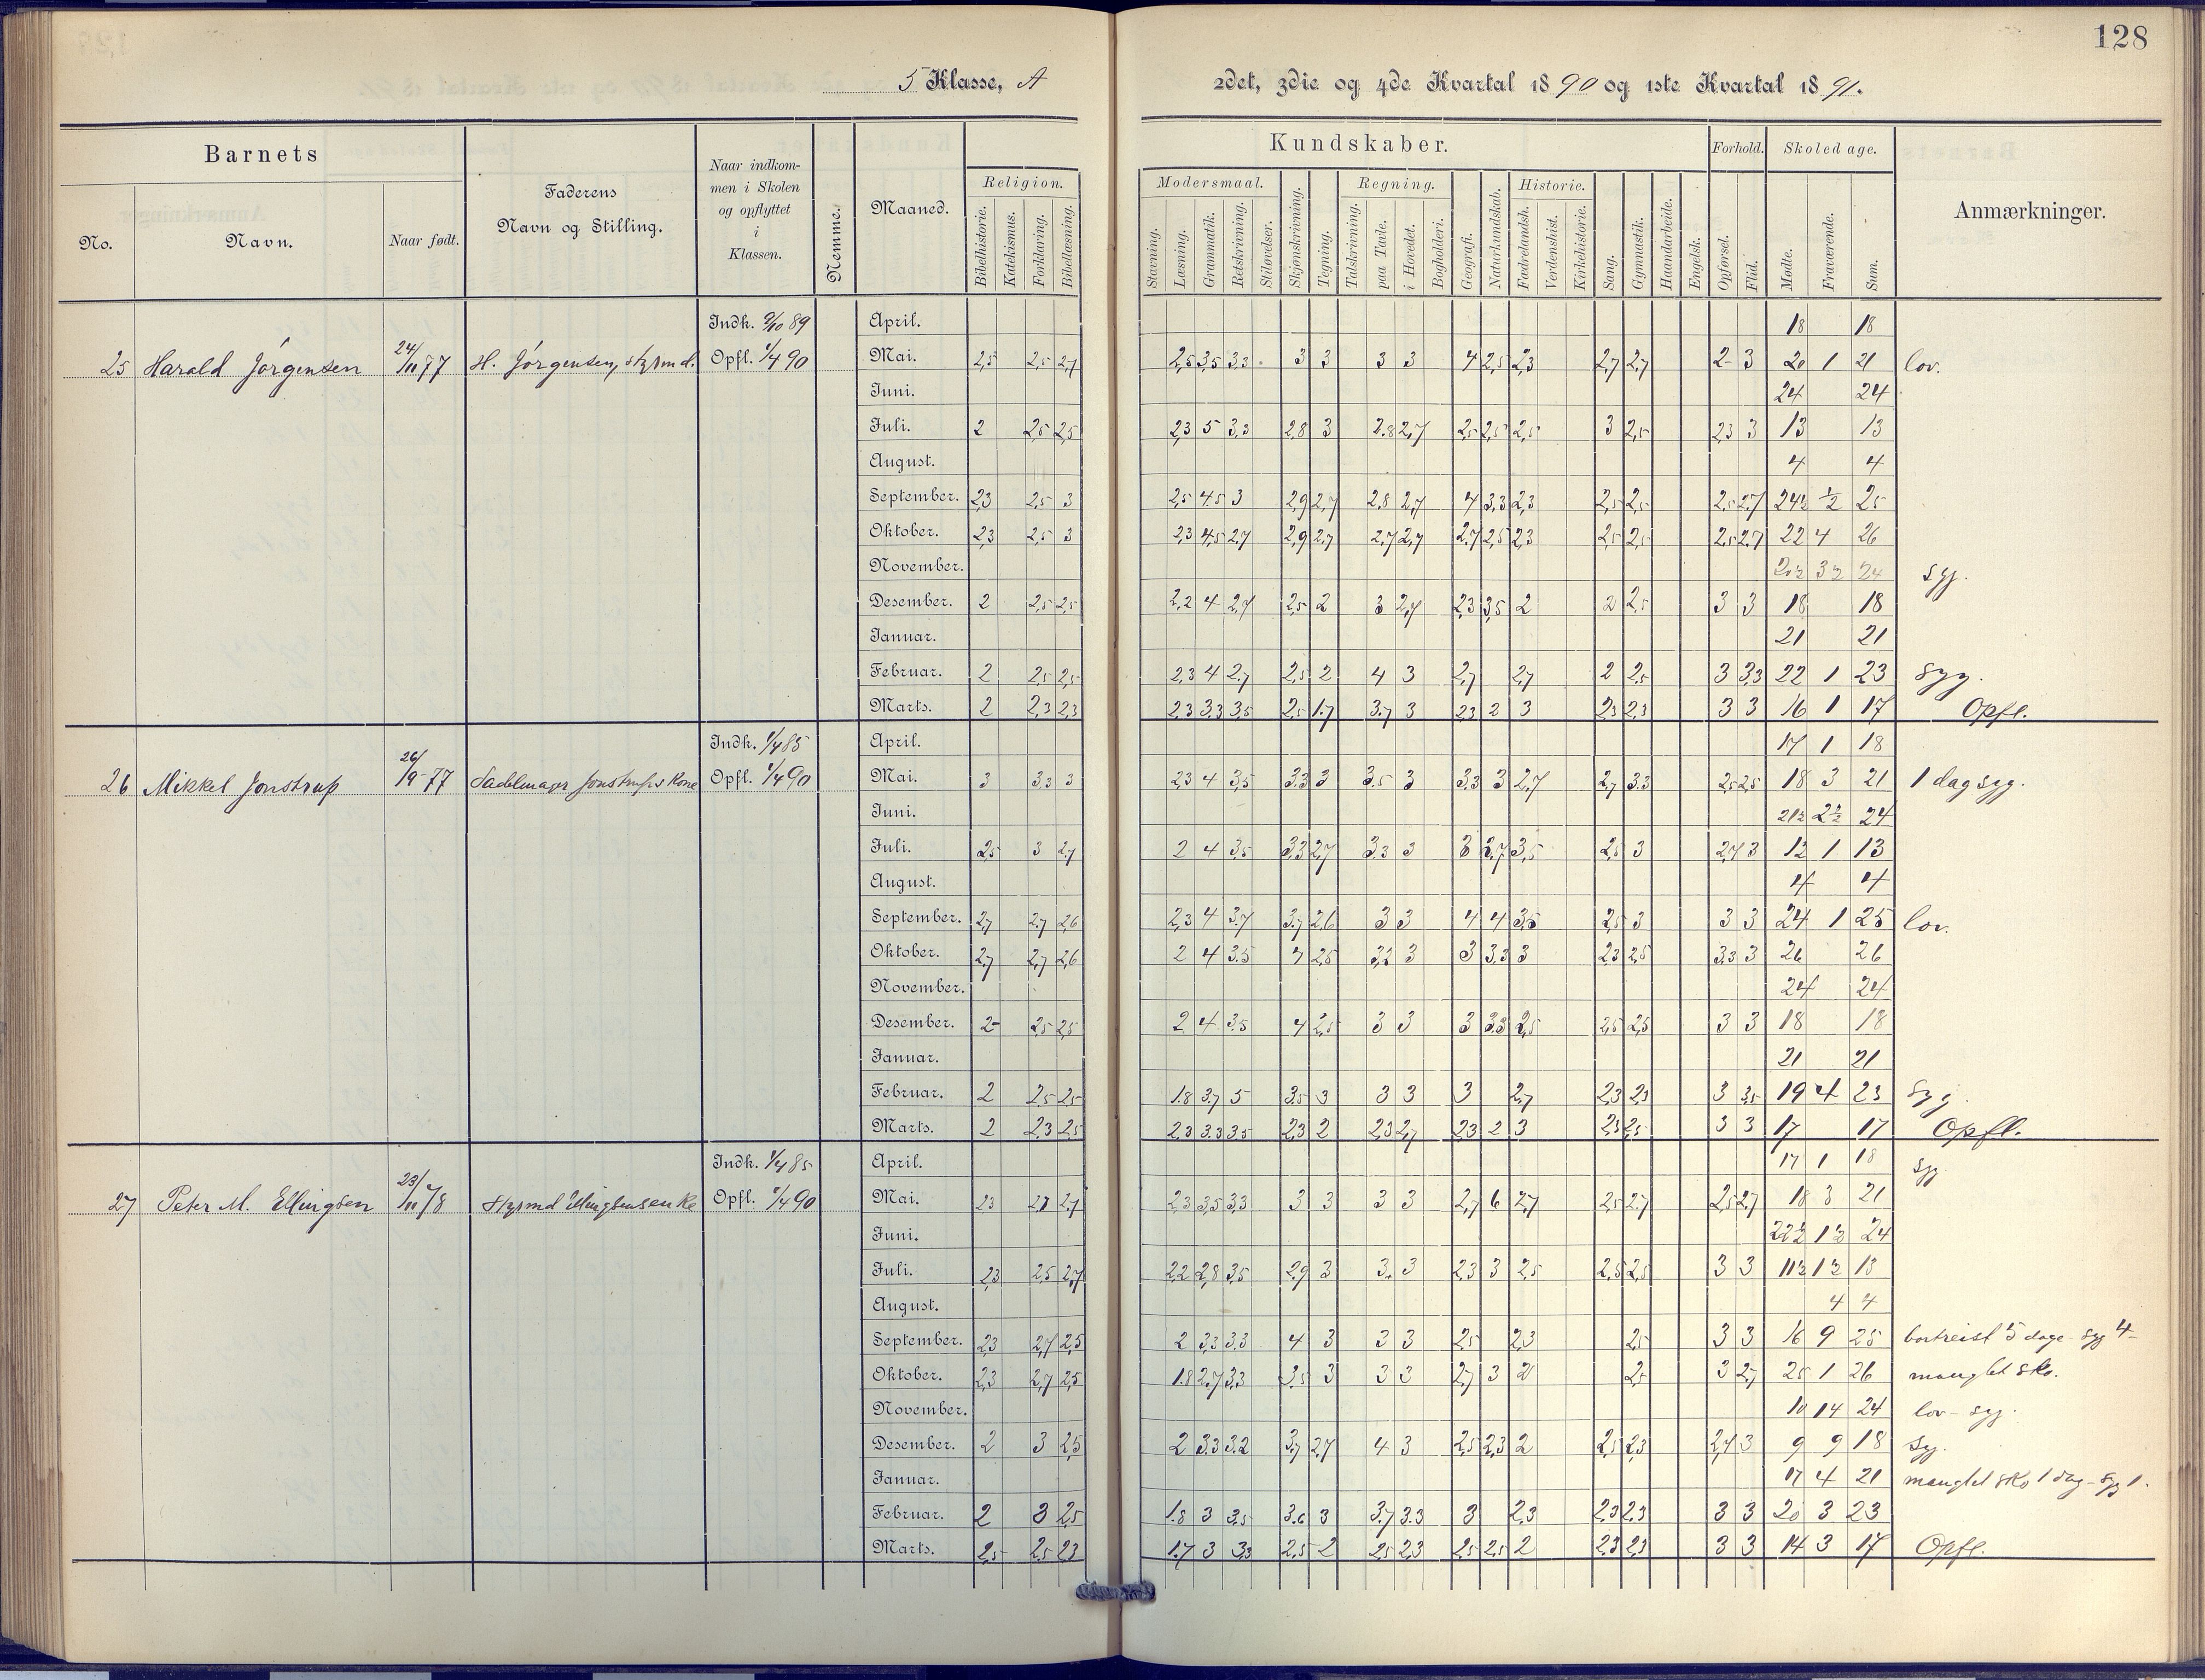 128
5 Klasse, A
2det, 3die og 4de Kvartal 1890 og 1ste Kvartal 1891.
Barnets
No.
Navn.
Naar født.
Faderens
Navn og Stilling.
Naar indkom-
men i Skolen
og opflyttet
i
Klassen.
Nemme.
Maaned.
Kundskaber.
Religion.
Bibelhistorie.
Katekismus.
Forklaring.
Bibellæsning.
Modersmaal.
Stavning.
Læsning.
Grammatik.
Retskrivning.
Stiløvelser.
Skjønskrivning.
Tegning.
Regning.
Talskrivning.
paa Tavle.
i Hovedet.
Bogholderi.
Geografi.
Naturkundskab.
Historie.
Fædrelandsh.
Verdenshist.
Kirkehistorie.
Sang.
Gymnastik.
Haandarbeide.
Engelsk.
Forhold.
Opførsel.
Flid.
Skoledage.
Mødte.
Fraværende.
Sum.
Anmærkninger.
25 Harald Jörgensen 24/11 77 H. Jörgensen, styrmd. Indk. 9/10 89 Opfl. 1/4 90
April. 18 18
Mai. 2,5 2,5 2,7 2,5 3,5 3,3 3 3 3 3 4 2,5 2,3 2,7 2,7 2 3 20 1 21 lov.
Juni. 24 24
Juli. 2 2,5 2,5 2,3 5 3,3 2,8 3 2.8 2,7 2,5 2,5 2,5 3 2,5 2,3 3 13 13
August. 4 4
September. 2,3 2,5 3 2,5 4,5 3 2,9 2,7 2,8 2,7 4 3,3 2,3 2,5 2,5 2,5 2,7 24½ ½ 25
Oktober. 2,3 2,5 3 2,3 4,5 2,7 2,9 2,7 2,7 2,7 2,7 2,5 2,3 2,5 2,5 2,5 2,7 22 4 26
November. 20½ 3½ 24 syg.
Desember. 2 2,5 2,5 2,2 4 2,7 2,5 2 3 2,7 2,3 3,5 2 2 2,5 3 3 18 18
Januar. 21 21
Februar. 2 2,5 2,5 2,3 4 2,7 2,5 2 4 3 2,7 2,7 2 2,5 3 3,3 22 1 23 syg.
Marts. 2 2,3 2,3 2,3 3,3 3,5 2,5 1.7 3.7 3 2,3 2 3 2,3 2,3 3 3 16 1 17 Opfl.
26 Mikkel Jonstrup 26/9 77 Sadelmager Jonstrups Kone Indk. 1/4 85 Opfl. 1/4 90
April. 17 1 18
Mai. 3 3,3 3 2,3 4 3,5 3.3 3 3.5 3 3.3 3 2,7 2,7 3.3 2,5 2,5 18 3 21 1 dag syg.
Juni. 21½ 2½ 24
Juli. 2,5 3 2,7 2 4 3,5 3,3 2,7 3.3 3 3 2,7 3,5 2,5 3 2,7 3 12 1 13
August. 4 4
September. 2,7 2,7 2,6 2,3 4 3,7 3,7 2,6 3 3 4 4 3,5 2,5 3 3 3 24 1 25 lov.
Oktober. 2,7 2,7 2,6 2 4 3.5 4 2,5 3,2 3 3 3,3 3 2,3 2,5 3,3 3 26 26
November. 24 24
Desember. 2 2,5 2,5 2 4 3,5 4 2,5 3 3 3 3,3 2,5 2,5 2,5 3 3 18 18
Januar. 21 21
Februar. 2 2,5 2,5 1.8 3,7 5 3,5 3 3 3 3 2,7 2,3 2,3 3 3,5 19 4 23 syg.
Marts. 2 2,3 2,5 2,3 3.3 3.5 2,3 2 2,3 2,7 2,3 2 3 2,3 2,5 3 3 17 17 Opfl.
27 Peter M. Ellingsen 23/11 78 Indk. 1/4 85 Opfl. 1/4 90
April. 17 1 18 syg
Mai. 2,3 2,7 2,7 2,3 3,5 3,3 3 3 3 3 2,7 6 2,7 2,5 2,7 2,5 2,7 18 3 21
Juni. 22½ 1½ 24
Juli. 2,3 2,5 2,7 2,2 2,8 3,5 2,9 3 3. 3 2,3 3 2,5 2,5 2,5 3 3 11½ 1½ 13
August. 4 4
September. 2,3 2,7 2,5 2 3,3 3.3 4 3 3 3 2,5 2,3 2,5 3 3 16 9 25 bortreist 5 dage - syg 4-
Oktober. 2,3 2,7 2,5 1.8 2.7 3,3 3,5 3 3 3 2,7 3 2 2,5 3 2,7 25 1 26 manglet sko.
November. 10 14 24 lov - syg.
Desember. 2 3 2,5 2 3.3 3.2 3,7 2,7 4 3 2,5 2,3 2 2,5 2,3 2,7 3 9 9 18 Syg.
Januar. 17 4 21 manglet sko 1 dag - syg 1.
Februar. 2 3 2,5 1.8 3 3,5 3.6 3 3.7 3.3 3 2,3 2,3 2,3 3 3 20 3 23
Marts. 2,5 2,5 2,3 1.7 3 3,3 2,5 2 2,5 2,3 2,5 2,5 2 2,3 2,3 3 3 14 3 17 Opfl.